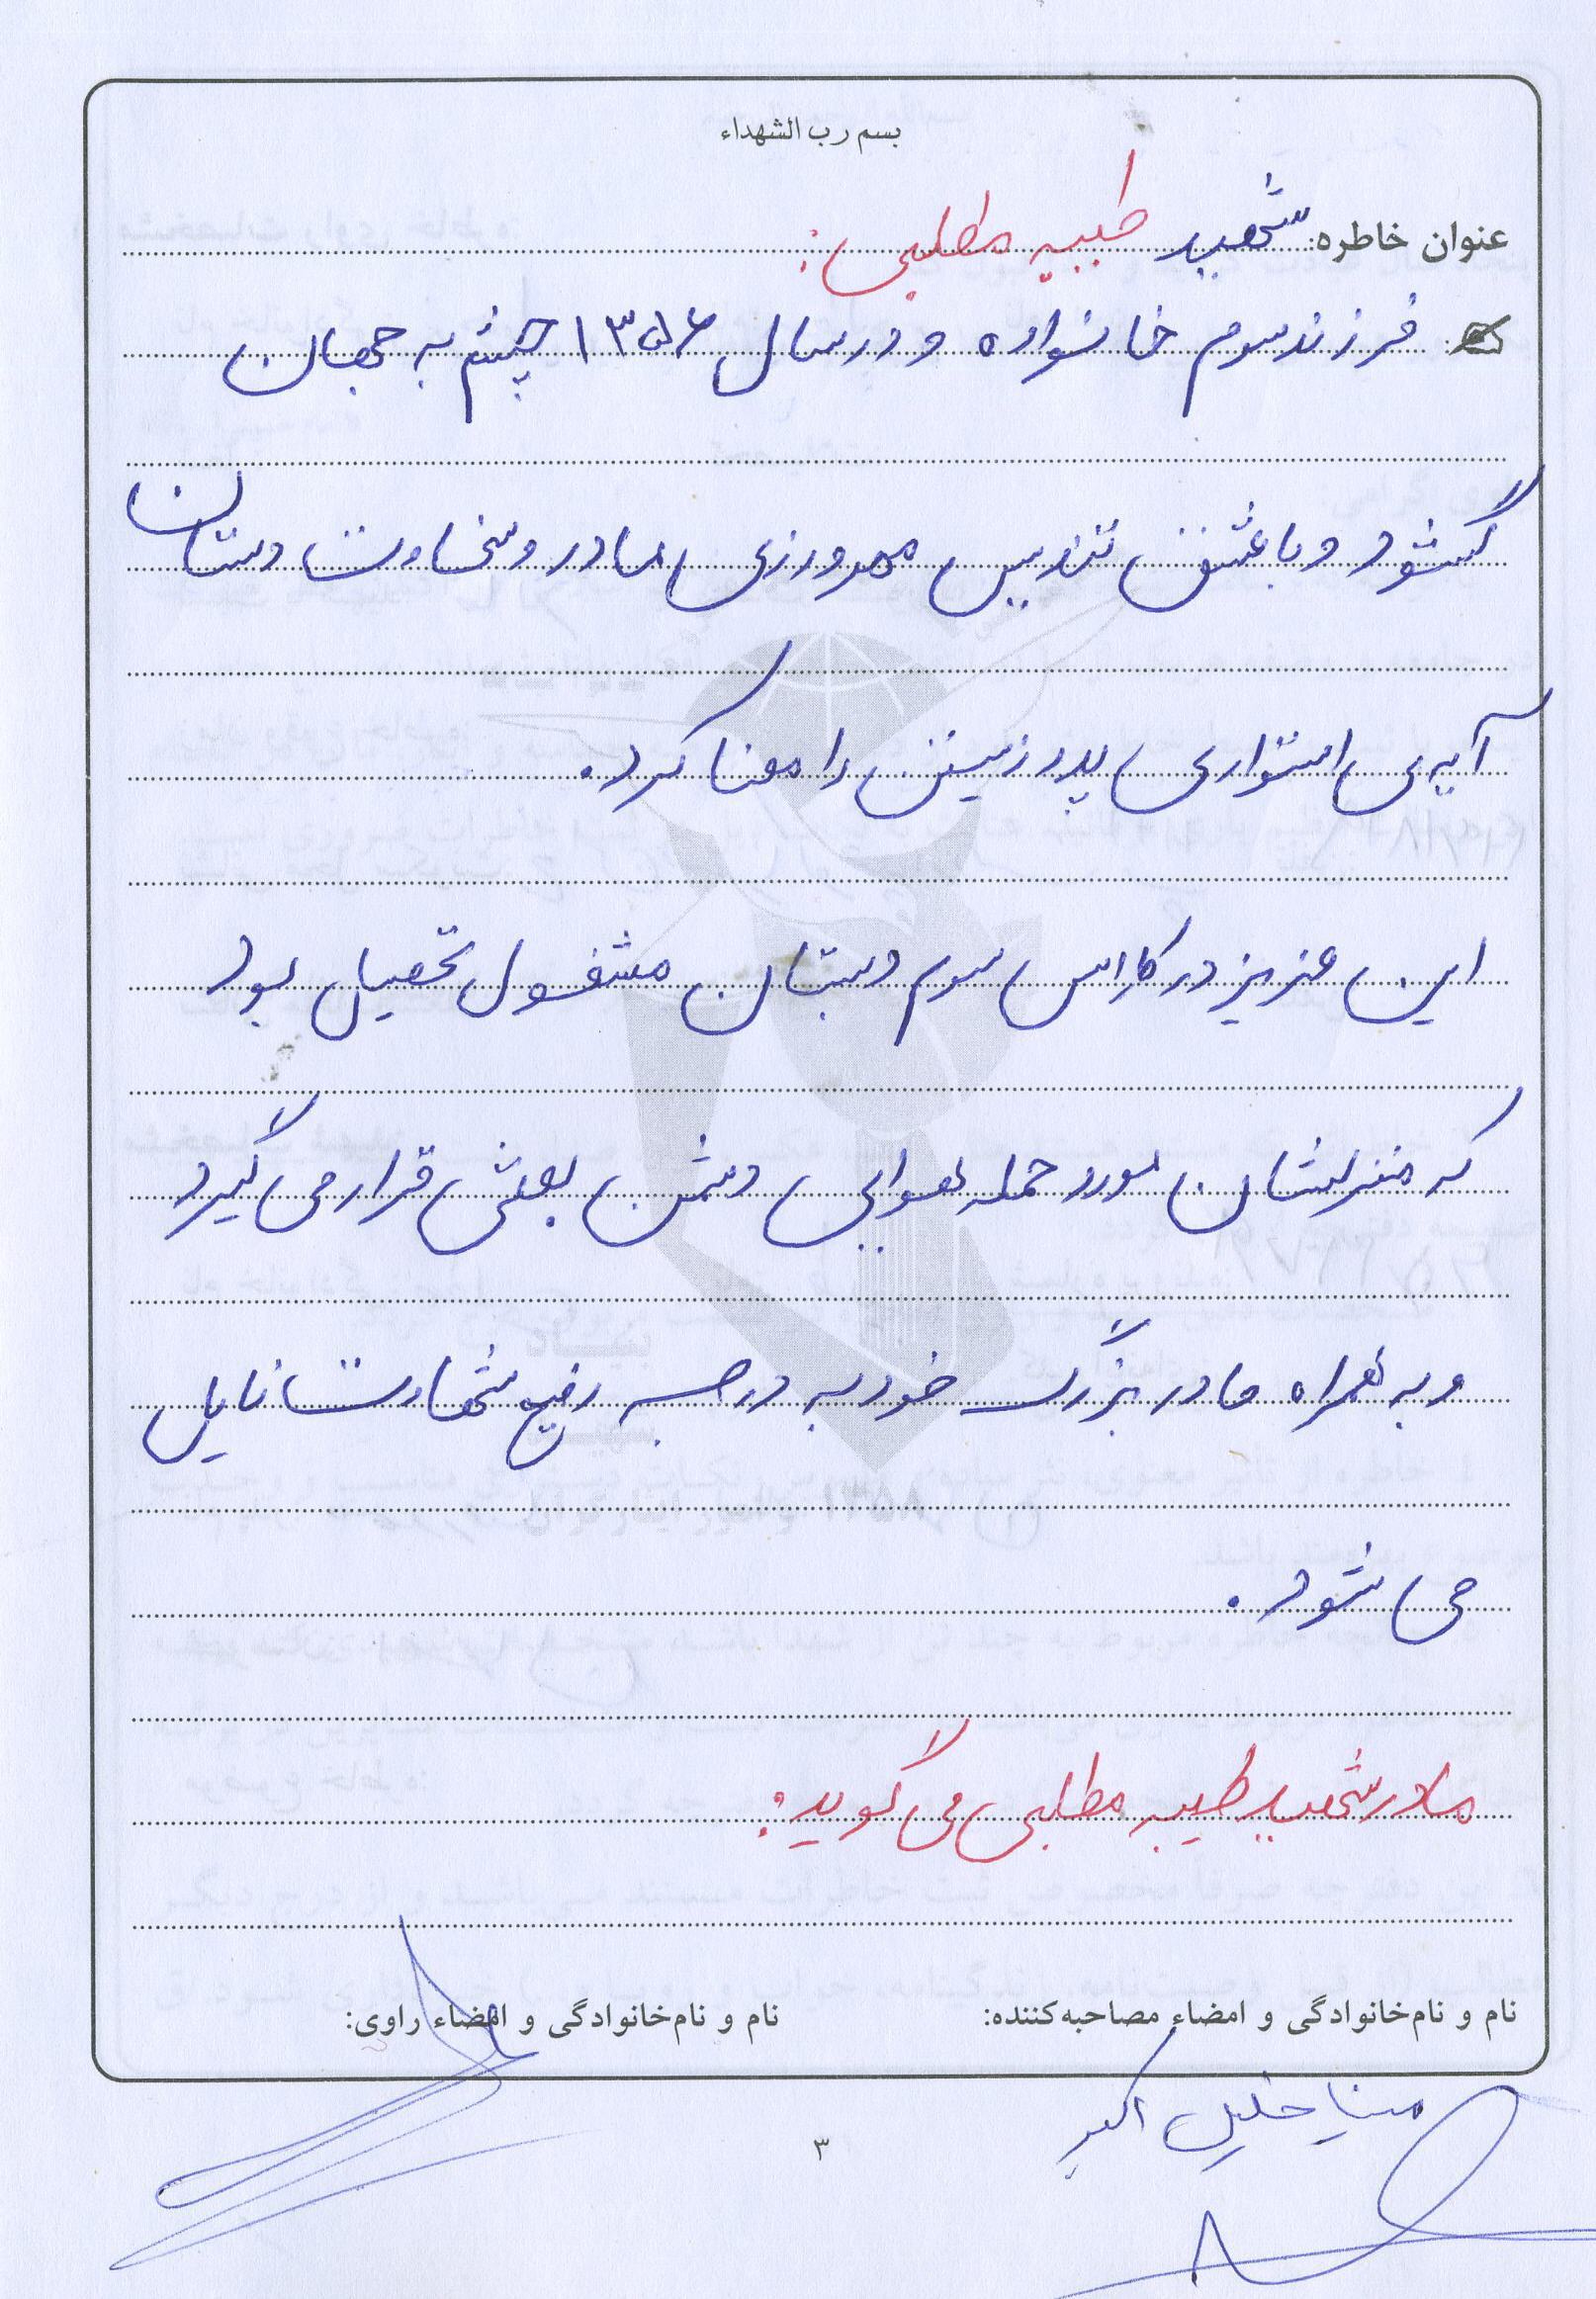 بسم رب الشهداء
عنوان خاطره: شهید طیبه مطلبی:
فرزند سوم خانواده و در سال ۱۳۵۶ چشم به جهان
گشود و با عشق تندیس مهرورزی مادر و سخاوت دستان
آیه‌ی استواری پدر زیستن را معنا کرد.
این عزیز در کلاس سوم دبستان مشغول تحصیل بود
که منزلشان مورد حمله هوایی دشمن بعثی قرار می گیرد
و به همراه مادر بزرگ خود به درجه رفیع شهادت نایل
می شود.
مادر شهید طیبه مطلبی می گوید:
نام و نام‌خانوادگی و امضاء مصاحبه‌کننده:
نام و نام‌خانوادگی و امضاء راوی:
مینا خلیل اکبر
۳